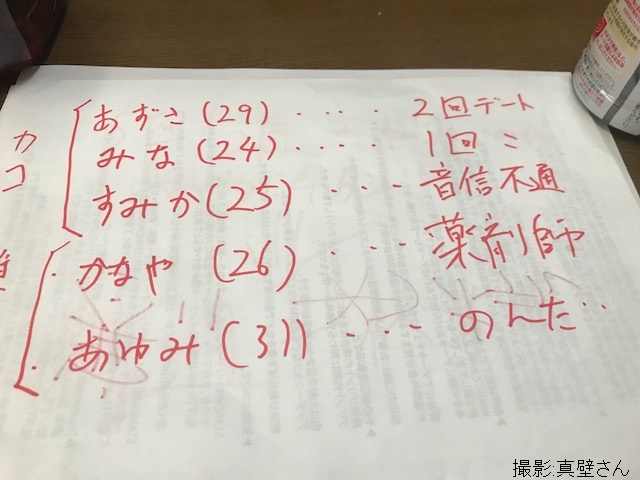 カコ
あずさ(29)・・・・2回デート
みな(24)・・・・1回〃
すみか(25)・・・音信不通
かなや(26)・・・薬剤師
あゆみ(31)・・・のんだ‥
撮影:真壁さん